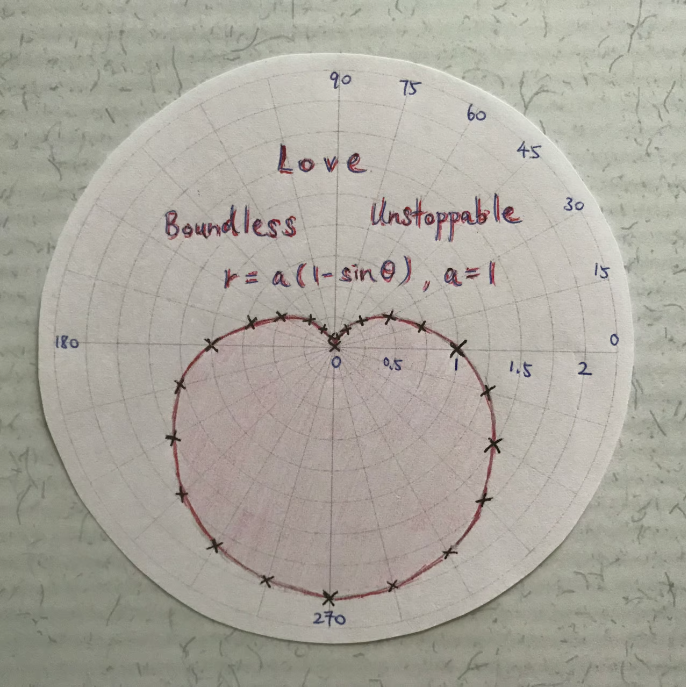 90
75
60
45
Love
30
Boundless Unstoppable
r = a(1-sinθ), a=1
15
180
0
0 0.5 1 1.5 2
270